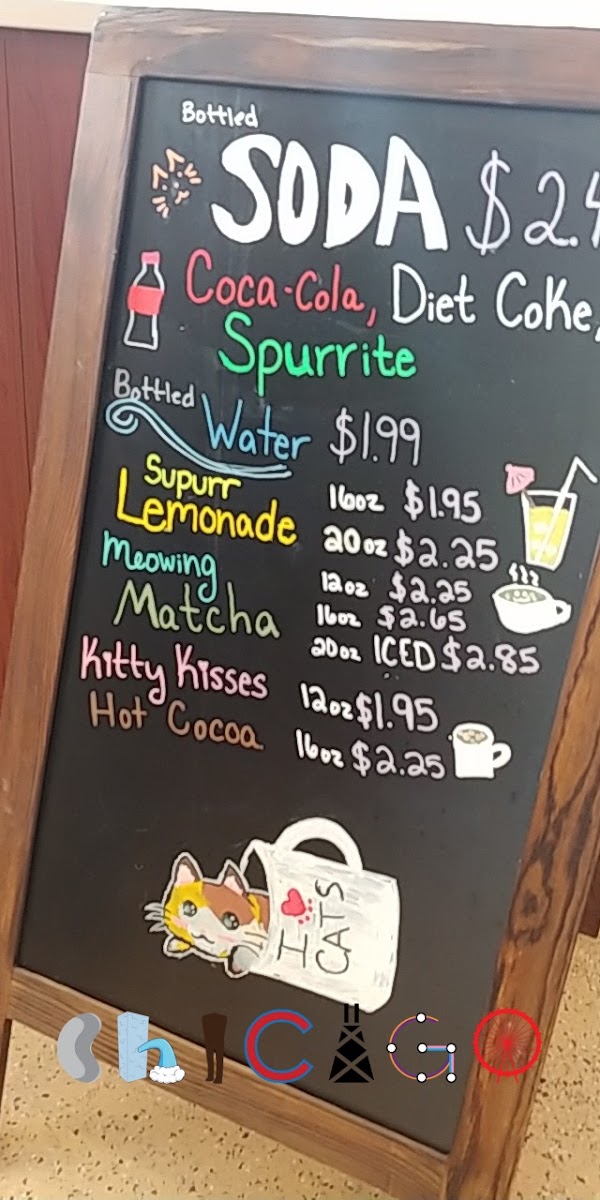 Bottled
SODA $2.4
Coca-Cola, Diet Coke,
Spurrite
Bottled
Water $1.99
Supurr
Lemonade
16oz $1.95
20oz $2.25
Meowing
Matcha
12oz $2.25
16oz $2.65
20oz ICED $2.85
Kitty Kisses
Hot Cocoa
12oz $1.95
16oz $2.25
I
CATS
ChICAGO